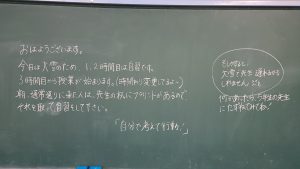 おはようございます。
今日は大雪のため 1、2時間目は自習です。
3時間目から授業が始まります。(時間わり変更してるよ〜)
朝、通常通りに来た人は、先生の机にプリントがあるので
それを取って自習をして下さい。
「自分で考えて行動!」
もしかすると
大雪で先生 遅れるかも
しれません
何かあったら 年生の先生
にたずねてみてね!